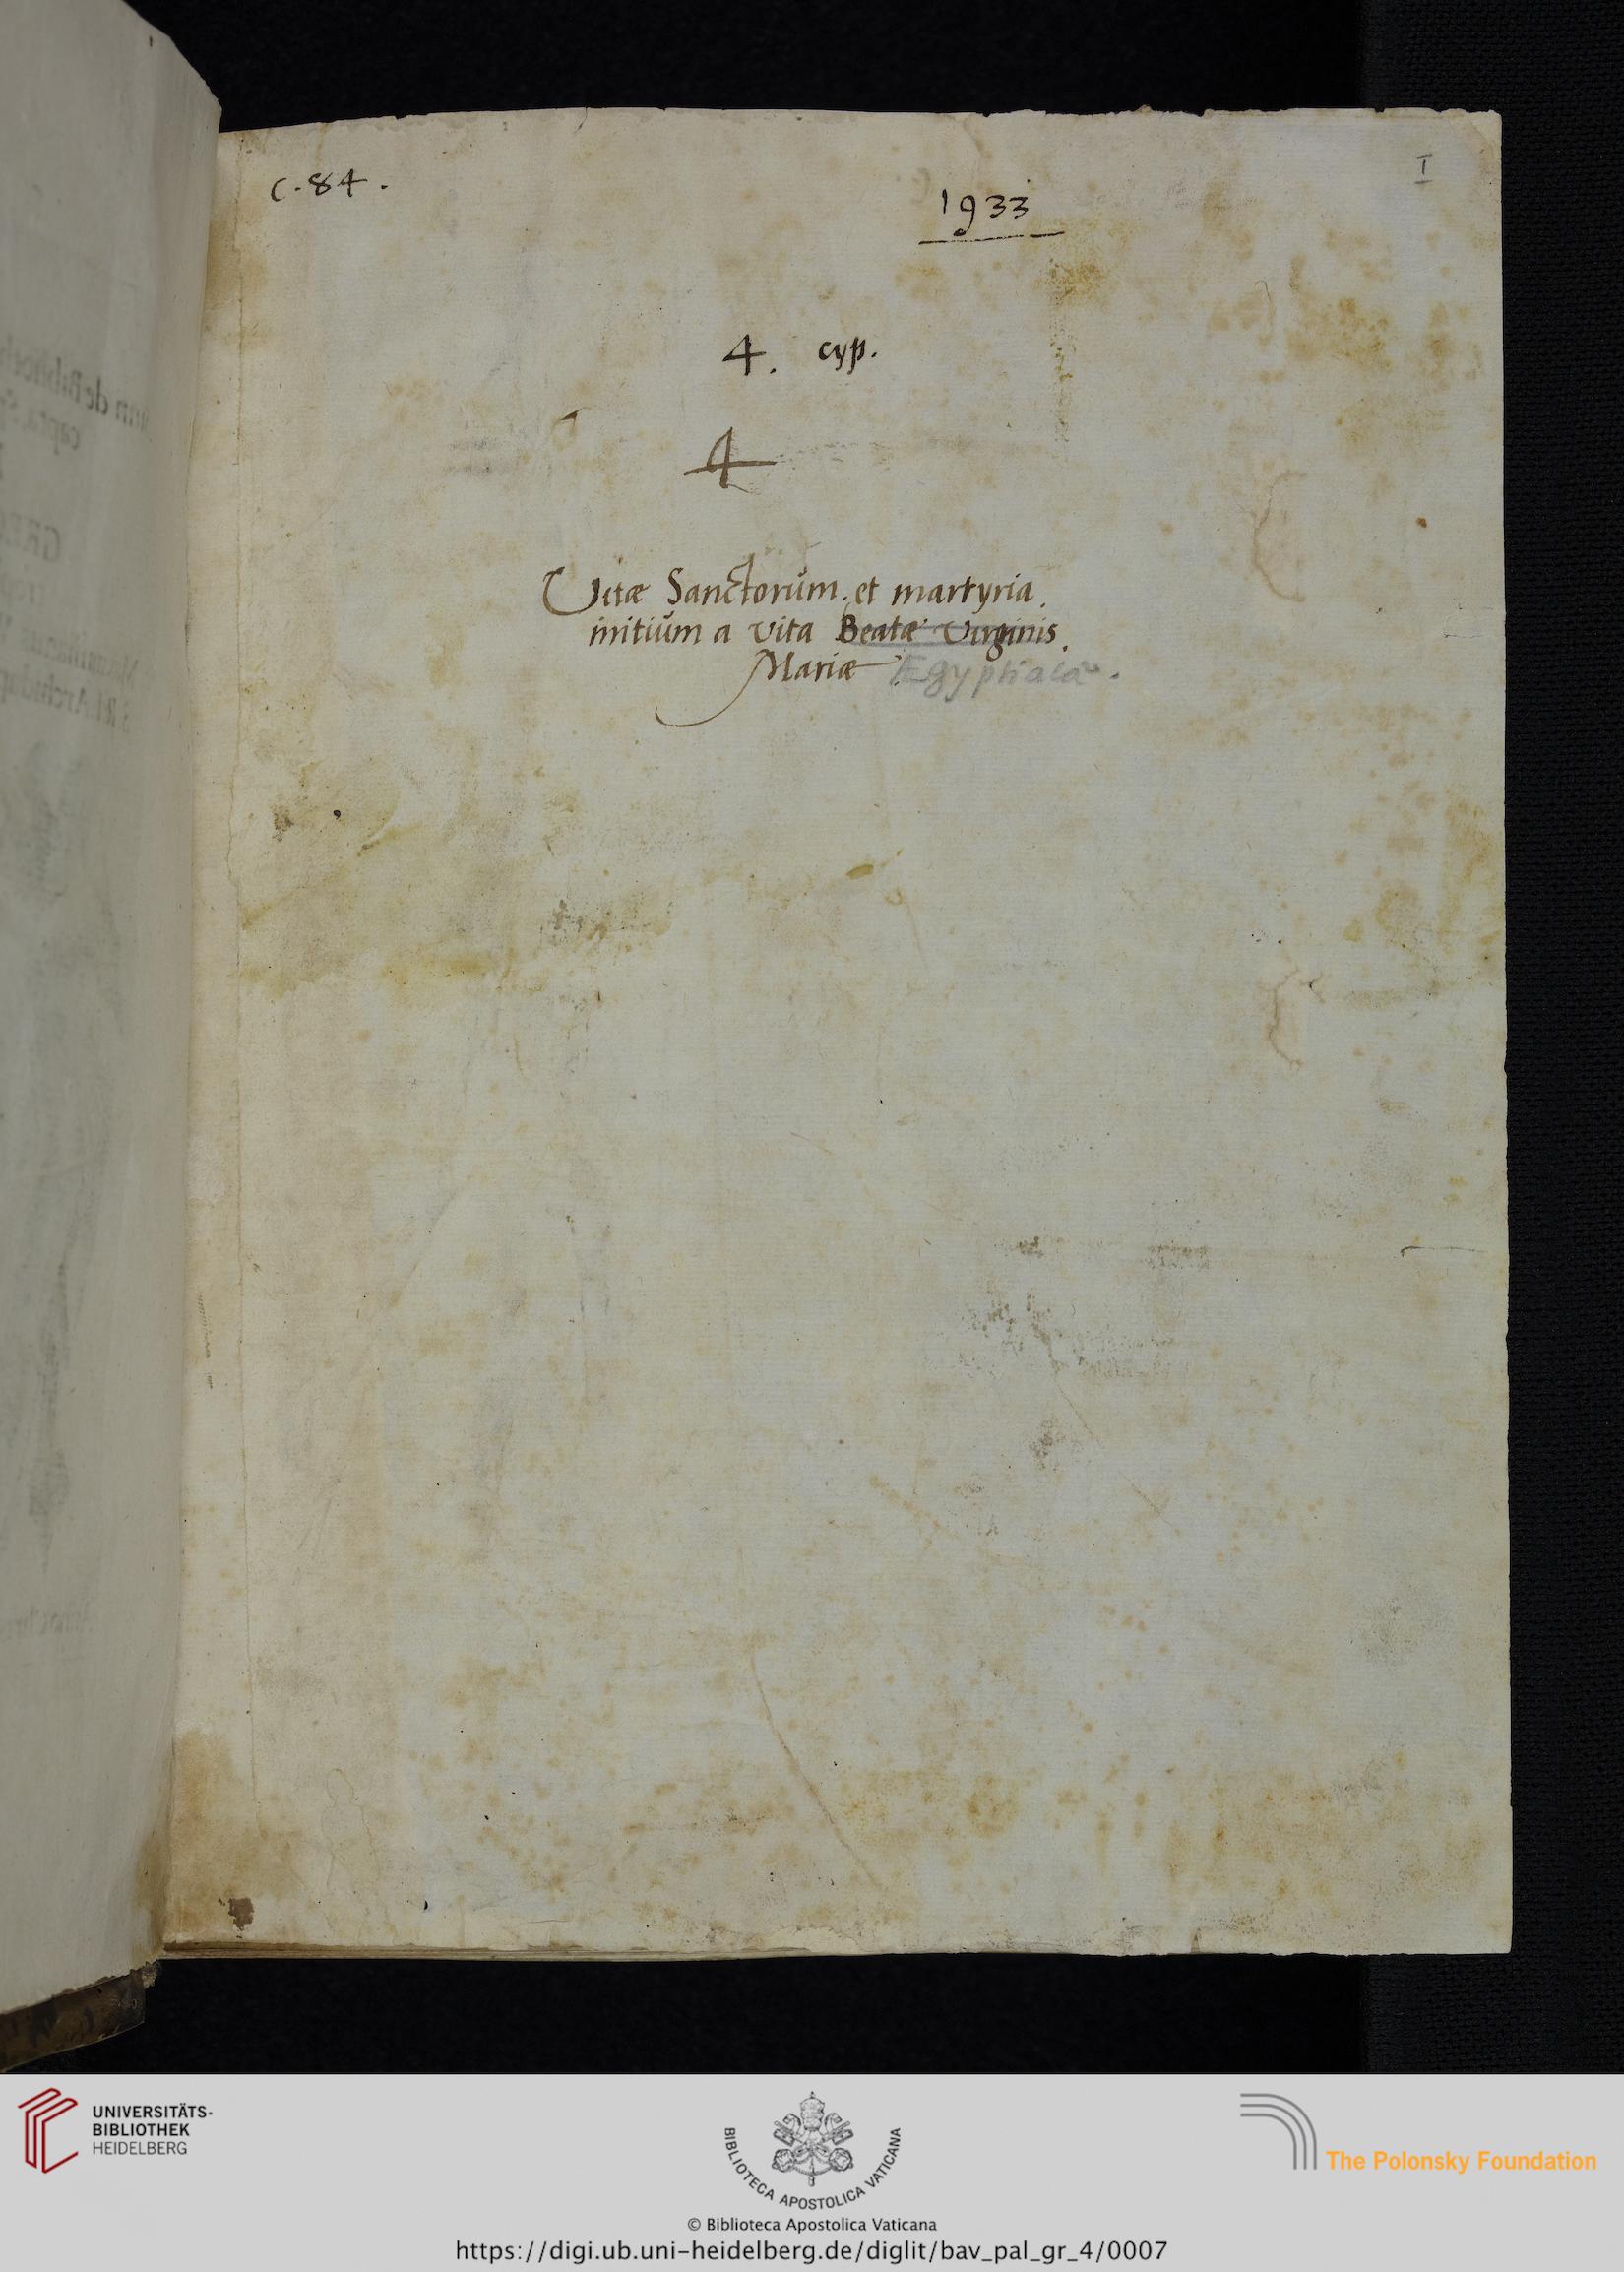 I
C. 84.
1933
4. cyp.
4
Vitæ Sanctorum. et martyria.
initium a vita Beatæ Virginis.
Mariæ Ægyptiacæ.
UNIVERSITÄTS-
BIBLIOTHEK
HEIDELBERG
BIBLIOTECA APOSTOLICA VATICANA
The Polonsky Foundation
© Biblioteca Apostolica Vaticana
https://digi.ub.uni-heidelberg.de/diglit/bav_pal_gr_4/0007